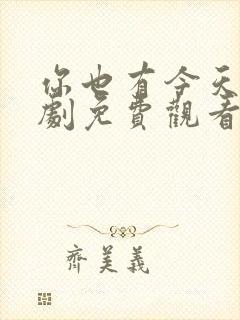 你也有今天
劇免費觀看
齊美義